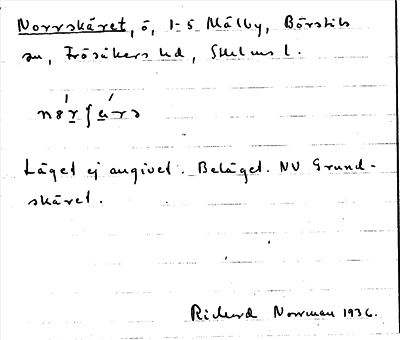 Norrskäret, ö, 1-5 Målby, Börstils
sn, Frösåkers hd, Sthlms l.
Läget ej angivet. Beläget. NV Grund-
skäret.
Richard Norrman 1936.